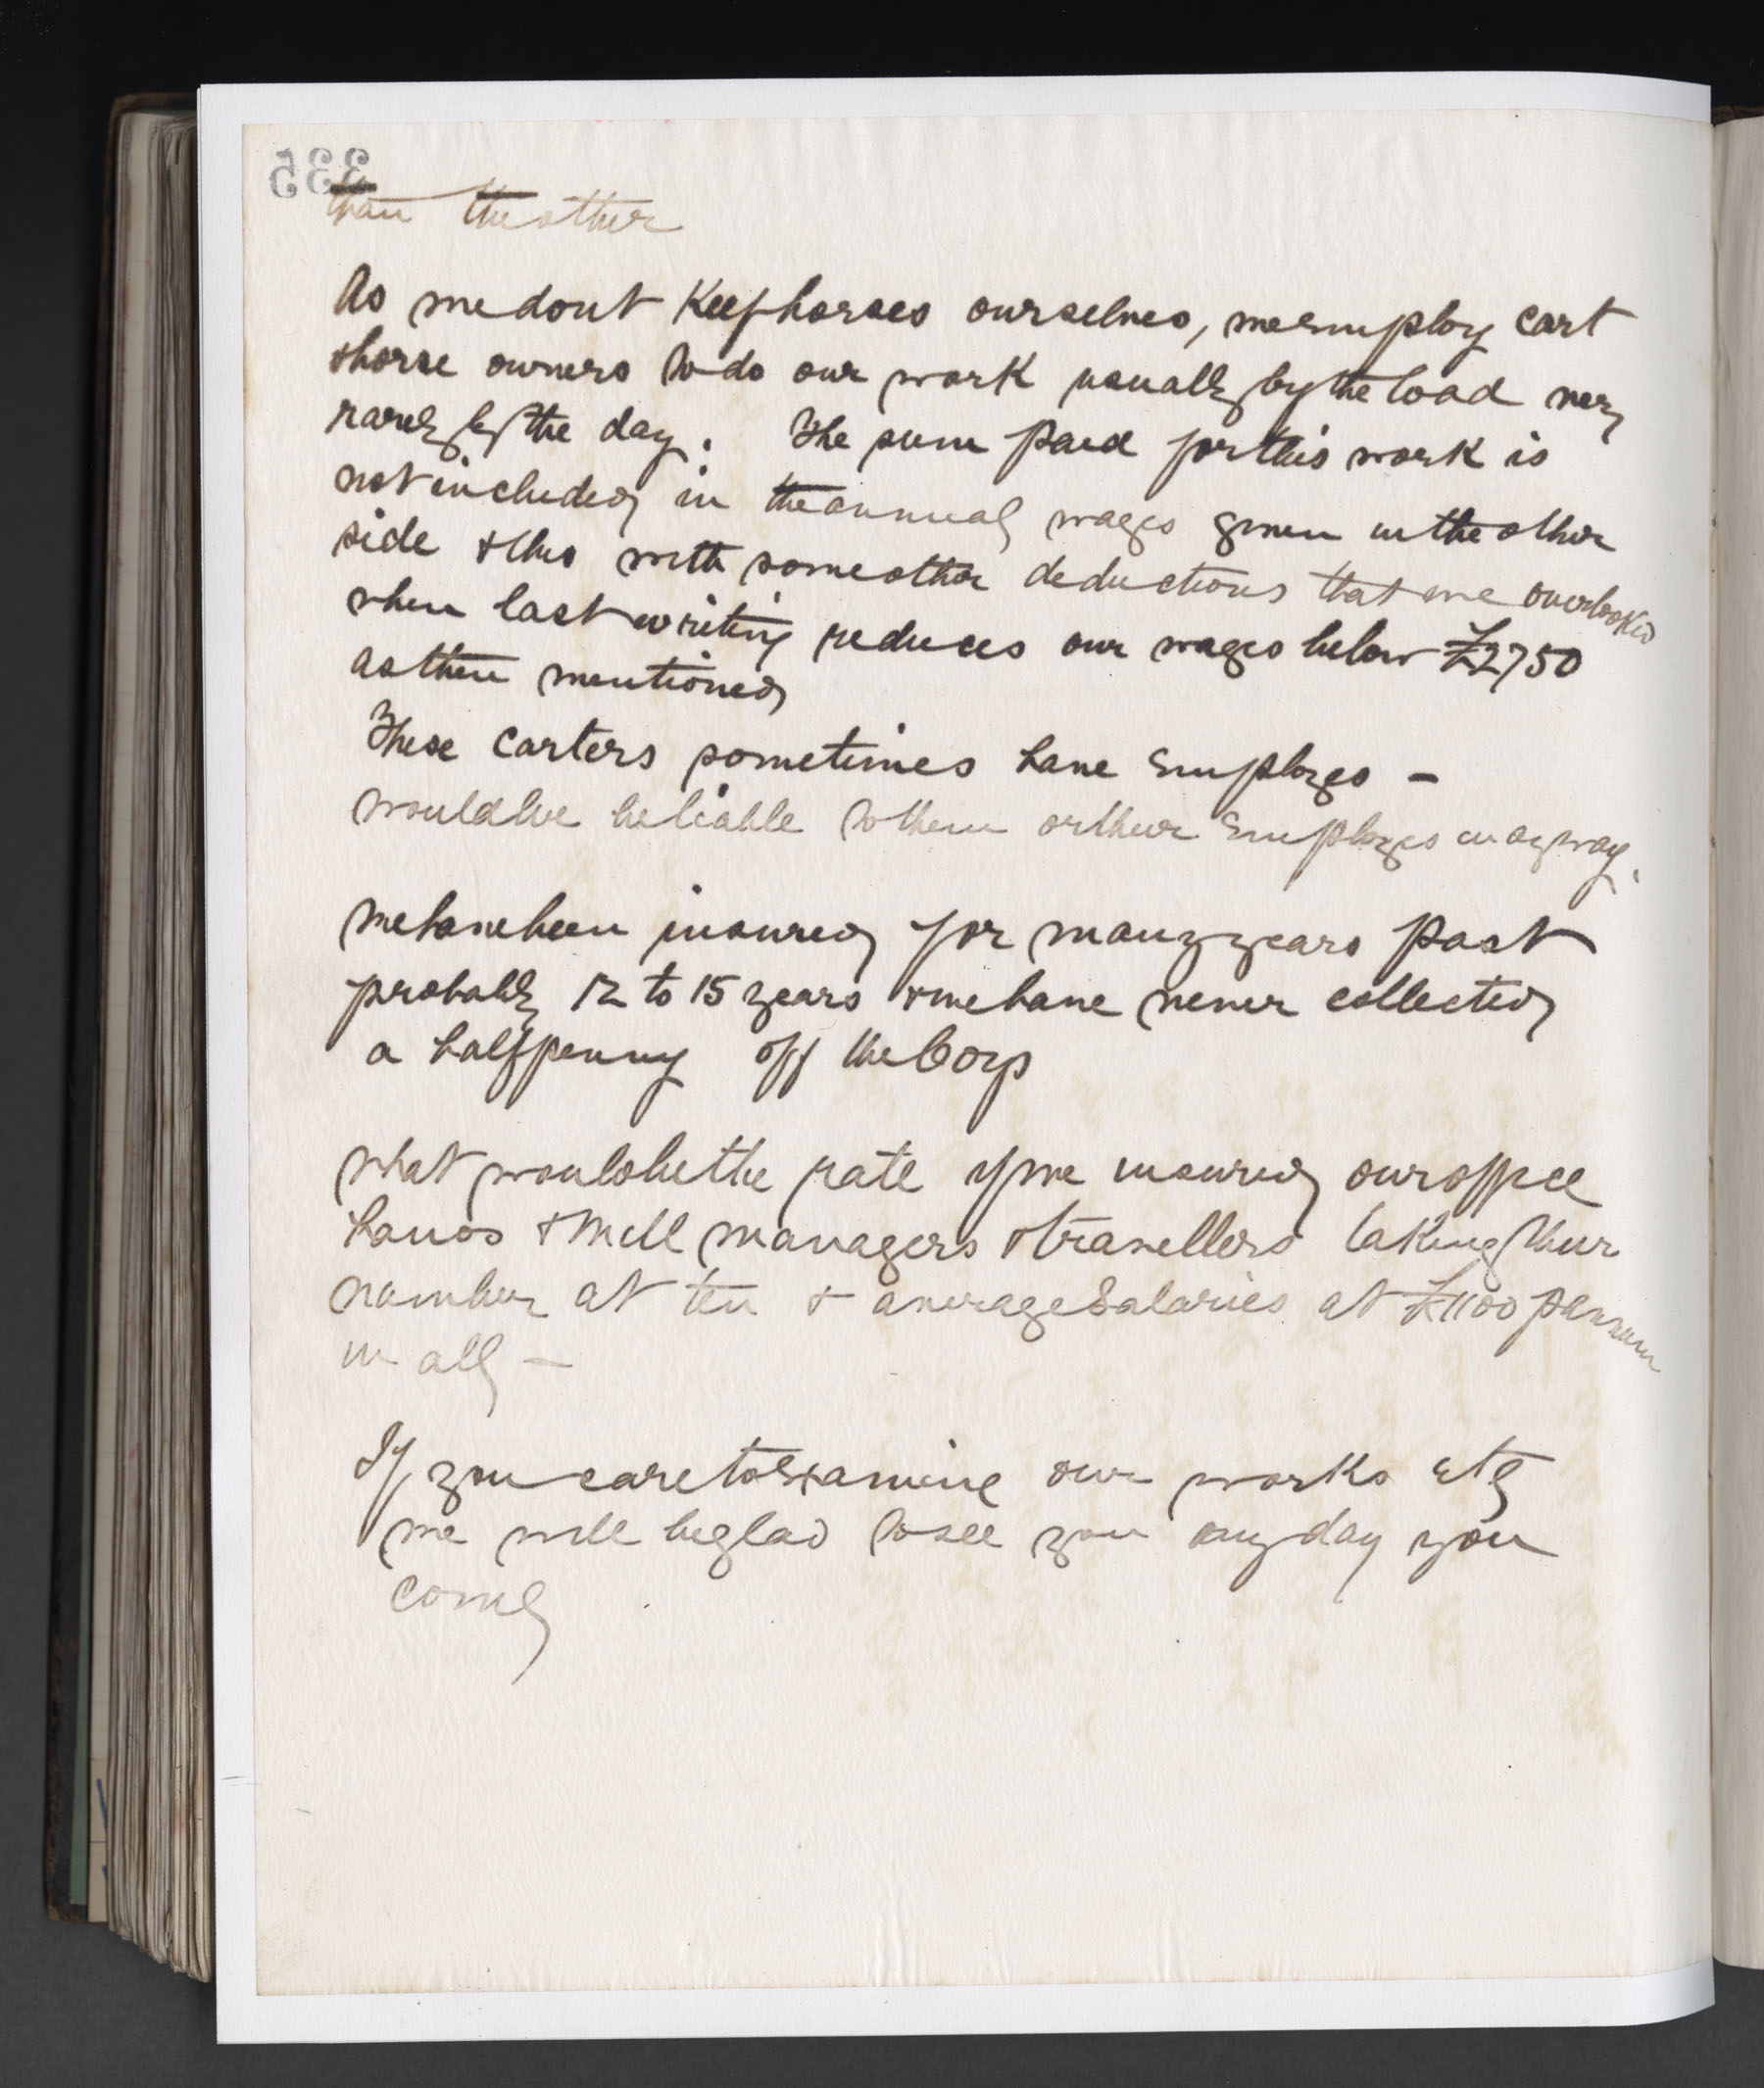 335
than the other
As we dont Keep horses ourselves, we employ cart
& horse owners to do our work usually by the load very
rarely by the day. The sum paid for this work is
not included in the annual wages given in the other
side & this with some other deductions that we overlooked
when last writing reduces our wages below £2750
as then mentioned
These carters sometimes have Employes -
would we be liable to them or their Employes in any way.
We have been insured for many years past
probably 12 to 15 years & we have never collected
a halfpenny off the Coys
What would be the rate if we insured our office
hands & Mill managers & travellers taking their
number at ten & average Salaries at £1100 p annum
in all -
If you care to Examine our works etc
we will be glad to see you any day you
come